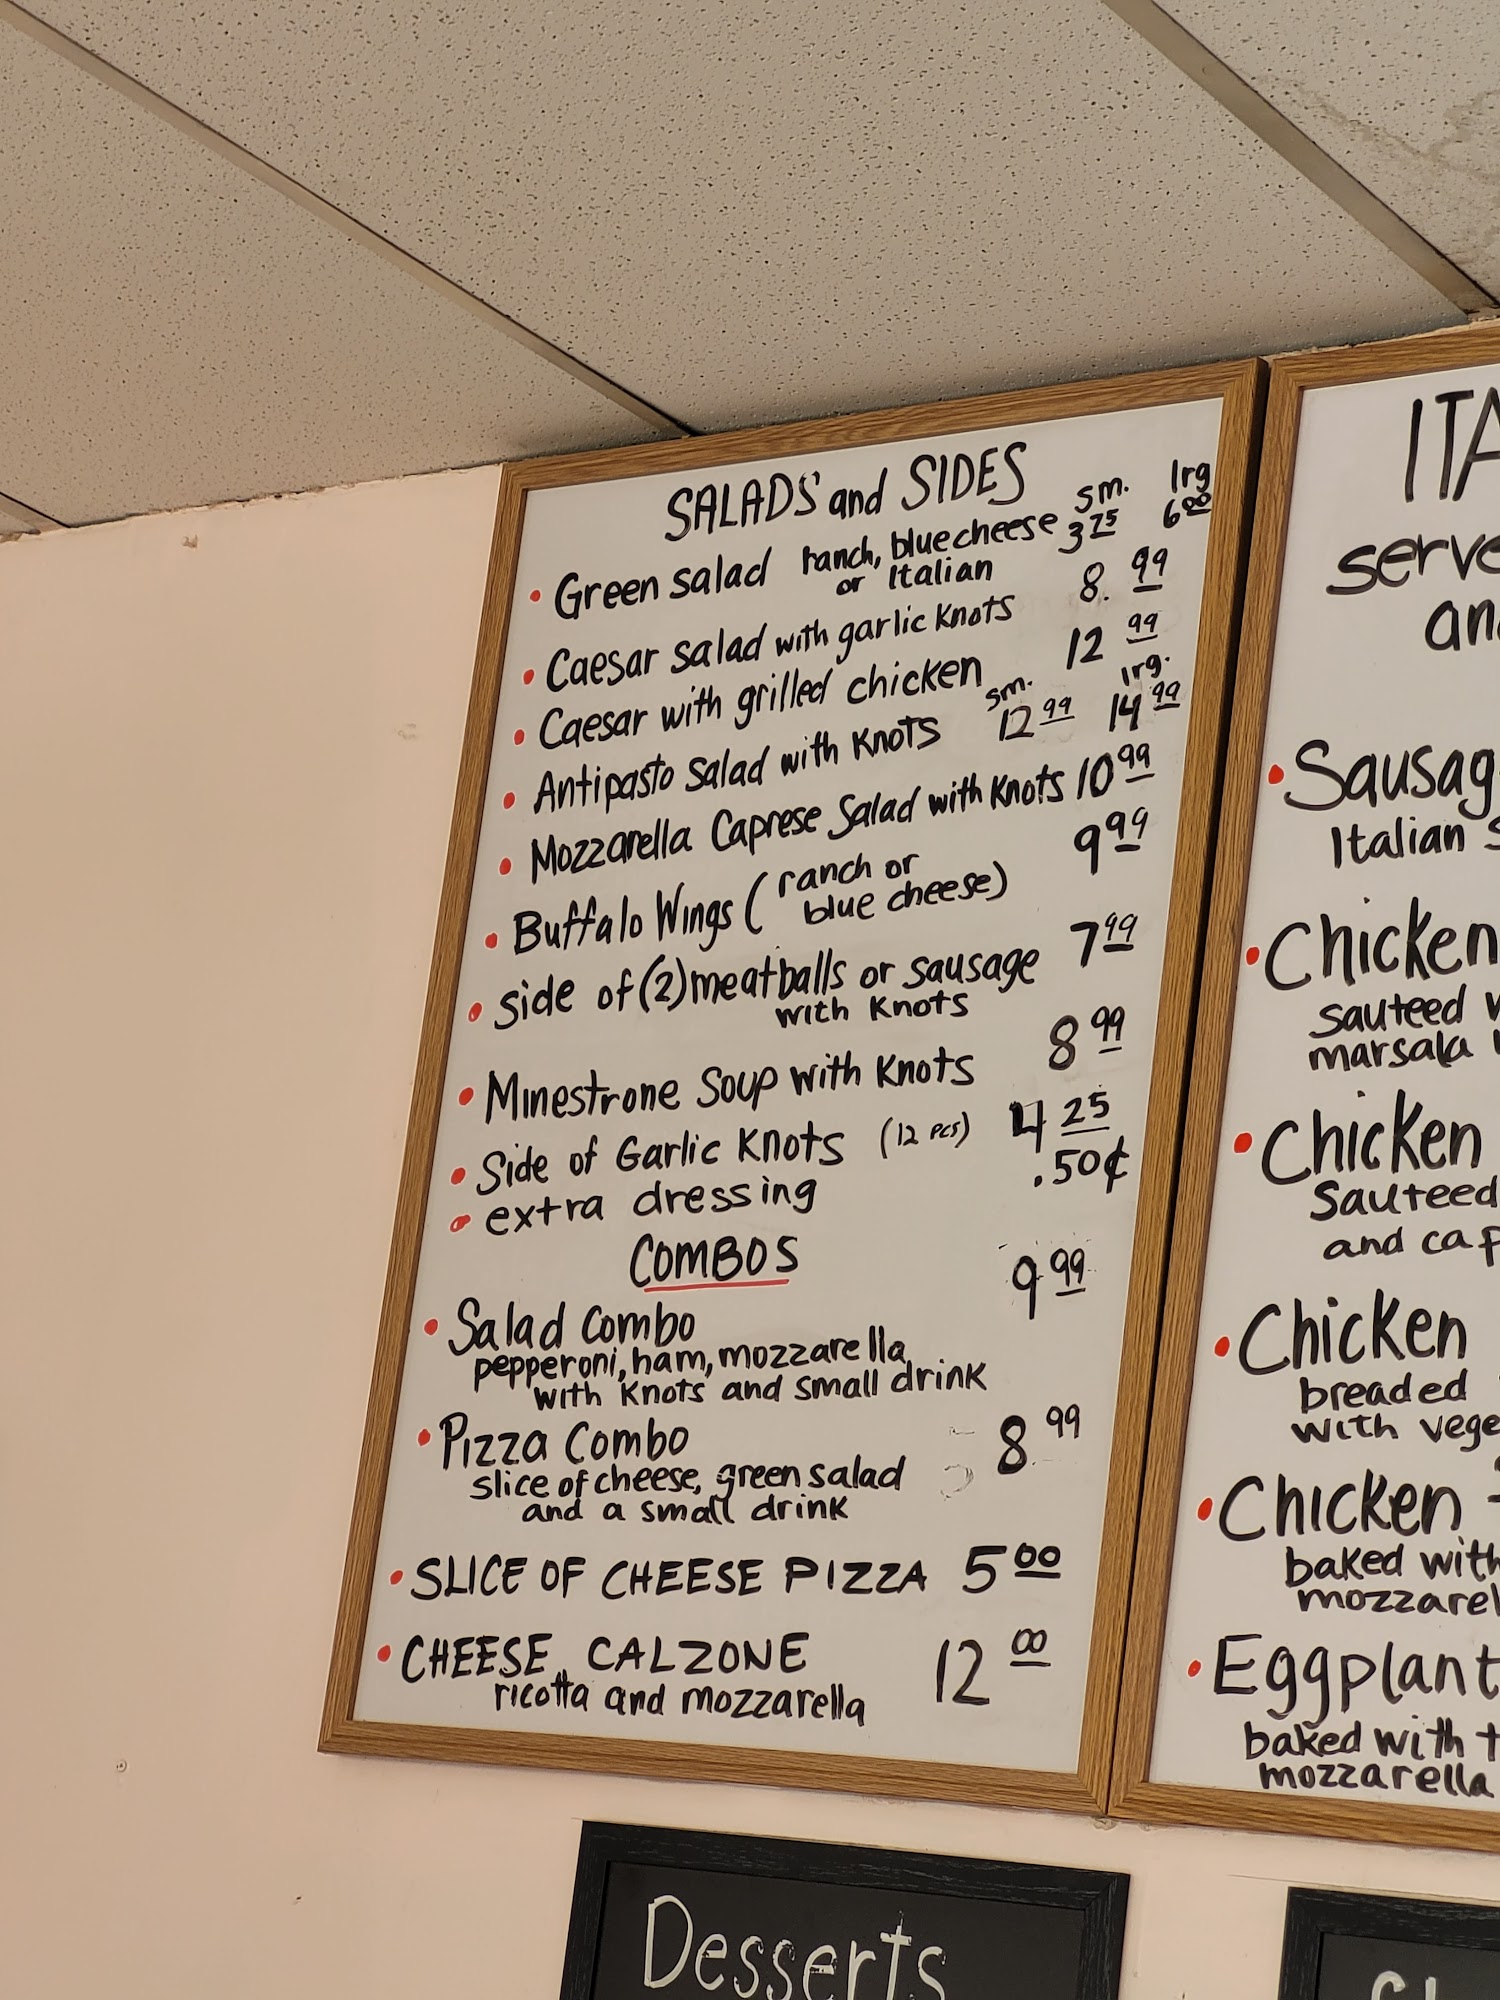 SALADS and SIDES
sm. lrg
• Green salad ranch, bluecheese 3 75 6 00
or Italian
• Caesar salad with garlic Knots 8. 99
• Caesar with grilled chicken 12 99
sm. lrg.
• Antipasto salad with Knots 12 99 14 99
• Mozzarella Caprese Salad with Knots 10 99
• Buffalo Wings (ranch or 9 99
blue cheese)
• side of (2) meatballs or sausage 7 99
with Knots
• Minestrone Soup with Knots 8 99
• Side of Garlic Knots (12 pcs) 4 25
• extra dressing .50¢
COMBOS
• Salad Combo 9 99
pepperoni, ham, mozzarella
with Knots and small drink
• Pizza Combo 8 99
slice of cheese, green salad
and a small drink
• SLICE OF CHEESE PIZZA 5 00
• CHEESE CALZONE 12 00
ricotta and mozzarella
ITA
serve
an
• Sausag
Italian s
• Chicken
sauteed w
marsala
• Chicken
Sauteed
and cap
• Chicken
breaded
with vege
• Chicken
baked with
mozzarel
• Eggplant
baked with t
mozzarella
Desserts